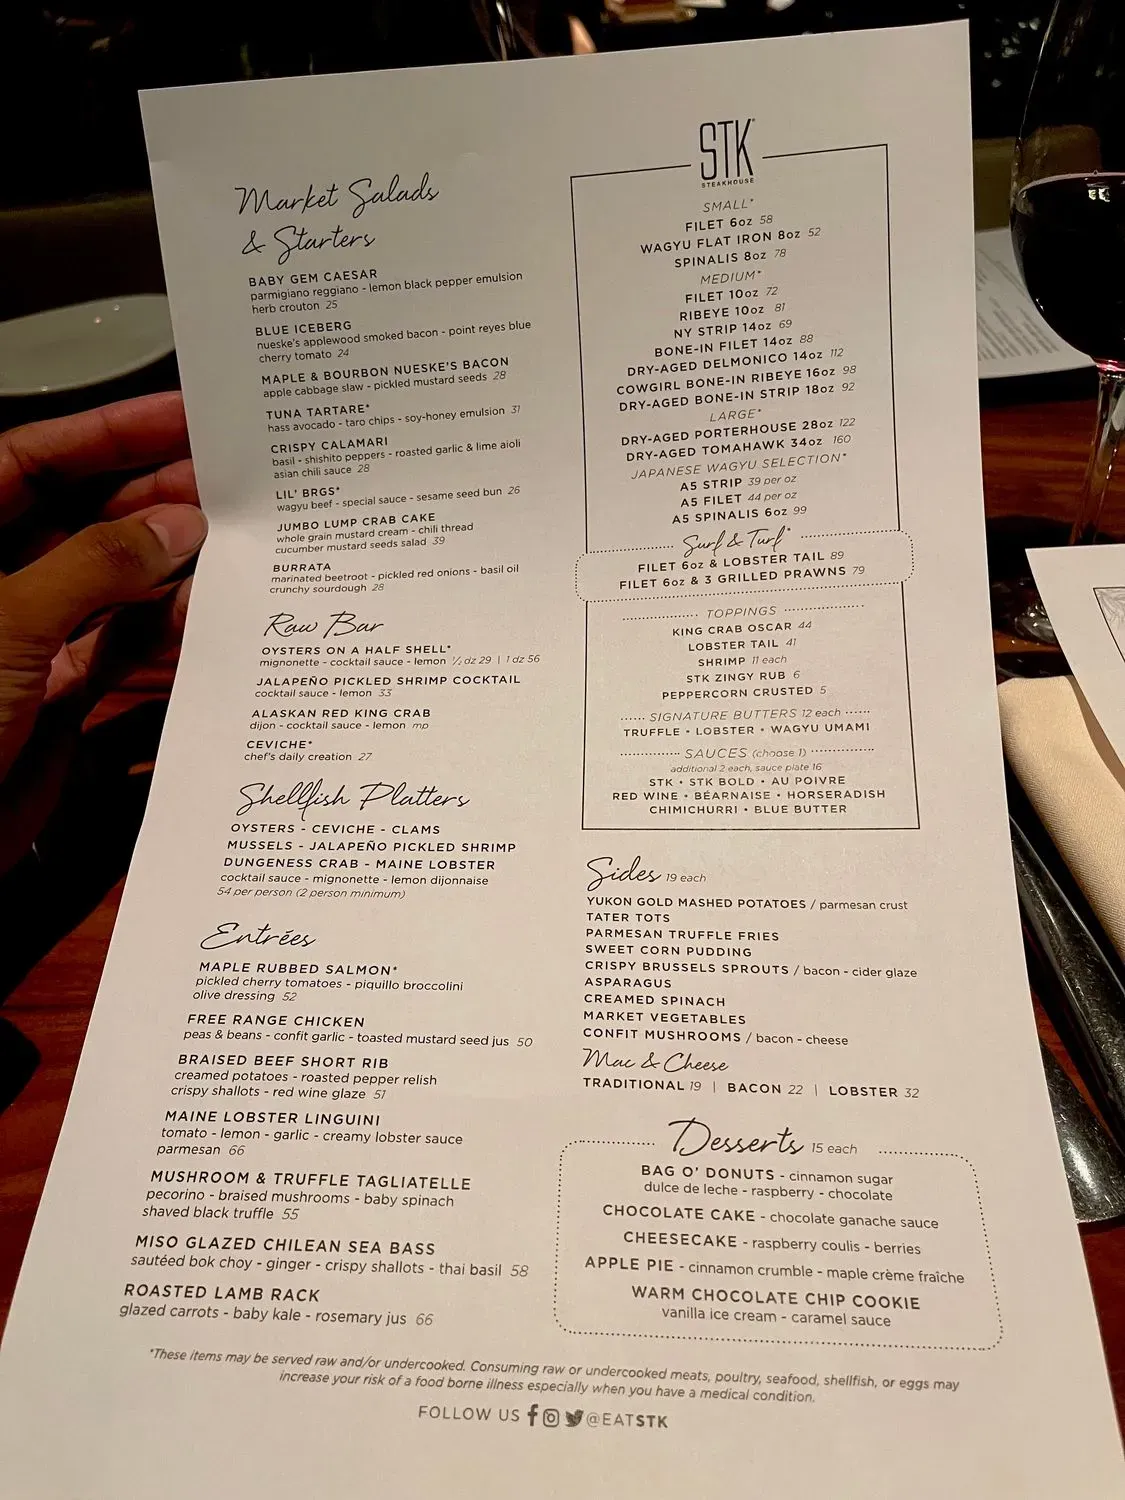 Market Salads
& Starters
BABY GEM CAESAR
parmigiano reggiano - lemon black pepper emulsion
herb crouton 25
BLUE ICEBERG
nueske's applewood smoked bacon - point reyes blue
cherry tomato 24
MAPLE & BOURBON NUESKE'S BACON
apple cabbage slaw - pickled mustard seeds 28
TUNA TARTARE*
hass avocado - taro chips - soy-honey emulsion 31
CRISPY CALAMARI
basil - shishito peppers - roasted garlic & lime aioli
asian chili sauce 28
LIL' BRGS*
wagyu beef - special sauce - sesame seed bun 26
JUMBO LUMP CRAB CAKE
whole grain mustard cream - chili thread
cucumber mustard seeds salad 39
BURRATA
marinated beetroot - pickled red onions - basil oil
crunchy sourdough 28
Raw Bar
OYSTERS ON A HALF SHELL*
mignonette - cocktail sauce - lemon ½ dz 29 | 1 dz 56
JALAPEÑO PICKLED SHRIMP COCKTAIL
cocktail sauce - lemon 33
ALASKAN RED KING CRAB
dijon - cocktail sauce - lemon mp
CEVICHE*
chef's daily creation 27
Shellfish Platters
OYSTERS - CEVICHE - CLAMS
MUSSELS - JALAPEÑO PICKLED SHRIMP
DUNGENESS CRAB - MAINE LOBSTER
cocktail sauce - mignonette - lemon dijonnaise
54 per person (2 person minimum)
Entrées
MAPLE RUBBED SALMON*
pickled cherry tomatoes - piquillo broccolini
olive dressing 52
FREE RANGE CHICKEN
peas & beans - confit garlic - toasted mustard seed jus 50
BRAISED BEEF SHORT RIB
creamed potatoes - roasted pepper relish
crispy shallots - red wine glaze 51
MAINE LOBSTER LINGUINI
tomato - lemon - garlic - creamy lobster sauce
parmesan 66
MUSHROOM & TRUFFLE TAGLIATELLE
pecorino - braised mushrooms - baby spinach
shaved black truffle 55
MISO GLAZED CHILEAN SEA BASS
sautéed bok choy - ginger - crispy shallots - thai basil 58
ROASTED LAMB RACK
glazed carrots - baby kale - rosemary jus 66
STK
STEAKHOUSE
SMALL*
FILET 6oz 58
WAGYU FLAT IRON 8oz 52
SPINALIS 8oz 78
MEDIUM*
FILET 10oz 72
RIBEYE 10oz 81
NY STRIP 14oz 69
BONE-IN FILET 14oz 88
DRY-AGED DELMONICO 14oz 112
COWGIRL BONE-IN RIBEYE 16oz 98
DRY-AGED BONE-IN STRIP 18oz 92
LARGE*
DRY-AGED PORTERHOUSE 28oz 122
DRY-AGED TOMAHAWK 34oz 160
JAPANESE WAGYU SELECTION*
A5 STRIP 39 per oz
A5 FILET 44 per oz
A5 SPINALIS 6oz 99
Surf & Turf*
FILET 6oz & LOBSTER TAIL 89
FILET 6oz & 3 GRILLED PRAWNS 79
TOPPINGS
KING CRAB OSCAR 44
LOBSTER TAIL 41
SHRIMP 11 each
STK ZINGY RUB 6
PEPPERCORN CRUSTED 5
SIGNATURE BUTTERS 12 each
TRUFFLE • LOBSTER • WAGYU UMAMI
SAUCES (choose 1)
additional 2 each, sauce plate 16
STK • STK BOLD • AU POIVRE
RED WINE • BÉARNAISE • HORSERADISH
CHIMICHURRI • BLUE BUTTER
Sides 19 each
YUKON GOLD MASHED POTATOES / parmesan crust
TATER TOTS
PARMESAN TRUFFLE FRIES
SWEET CORN PUDDING
CRISPY BRUSSELS SPROUTS / bacon - cider glaze
ASPARAGUS
CREAMED SPINACH
MARKET VEGETABLES
CONFIT MUSHROOMS / bacon - cheese
Mac & Cheese
TRADITIONAL 19 | BACON 22 | LOBSTER 32
Desserts 15 each
BAG O' DONUTS - cinnamon sugar
dulce de leche - raspberry - chocolate
CHOCOLATE CAKE - chocolate ganache sauce
CHEESECAKE - raspberry coulis - berries
APPLE PIE - cinnamon crumble - maple crème fraîche
WARM CHOCOLATE CHIP COOKIE
vanilla ice cream - caramel sauce
*These items may be served raw and/or undercooked. Consuming raw or undercooked meats, poultry, seafood, shellfish, or eggs may
increase your risk of a food borne illness especially when you have a medical condition.
FOLLOW US @EATSTK